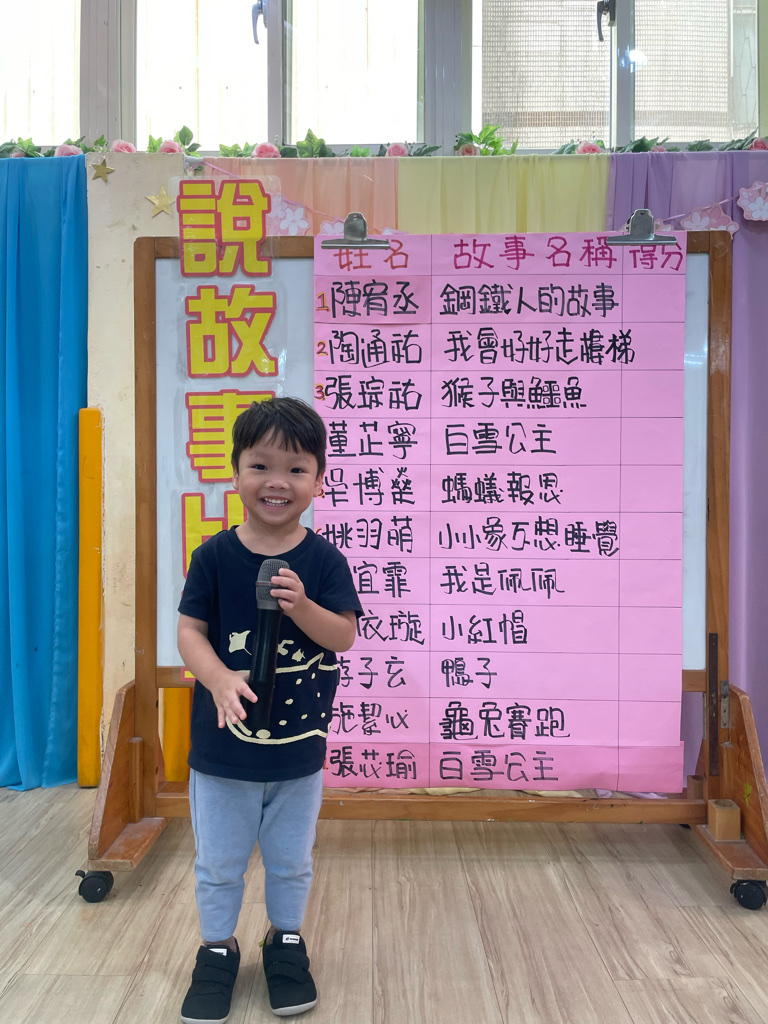 說故事比
姓名 故事名稱 得分
1. 陳宥丞 鋼鐵人的故事
2. 陶通祐 我會好好走樓梯
3. 張琮祐 猴子與鱷魚
董芷寧 白雪公主
吳博榮 螞蟻報恩
姚羽萌 小小象不想睡覺
宜霏 我是佩佩
依璇 小紅帽
游子玄 鴨子
施絜心 龜兔賽跑
張芯瑜 白雪公主